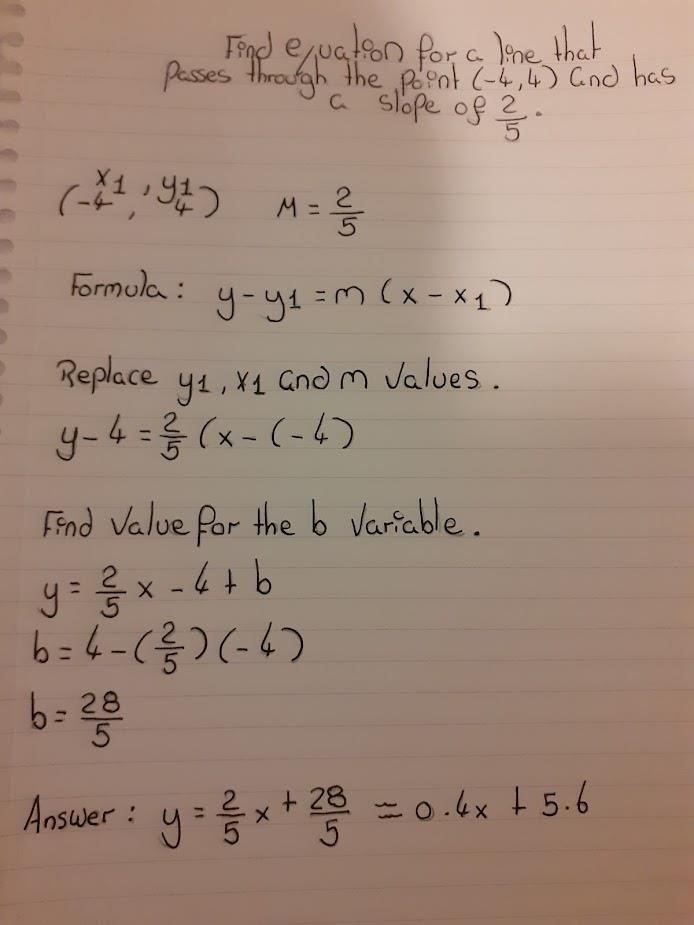 Find equation for a line that
passes through the point (-4,4) and has
a slope of 2/5.
x1, y1
(-4, 4) M = 2/5
Formula: y - y1 = m (x - x1)
Replace y1, x1 and m values.
y - 4 = 2/5 (x - (-4)
Find value for the b variable.
y = 2/5 x - 4 + b
b = 4 - (2/5) (-4)
b = 28/5
Answer: y = 2/5 x + 28/5 ≈ 0.4x + 5.6